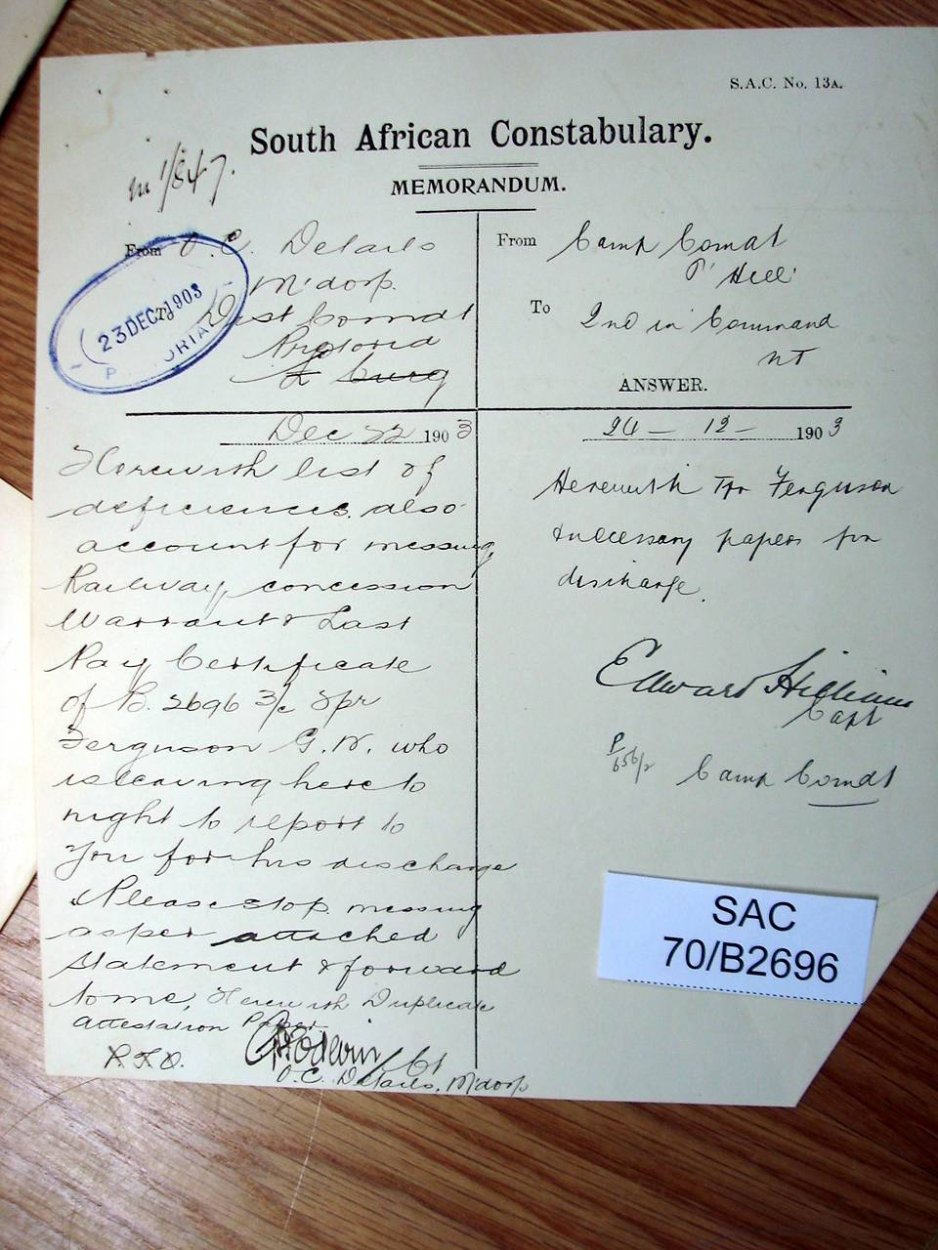 S.A.C. No. 13A.
South African Constabulary.
MEMORANDUM.
m 1/847.
From O. C. Details
M'dorp.
Dist Comdt
Pretoria
23 DEC 1903
P ORIA
From Camp Comdt
P' Hill
To 2nd in Command
NT
ANSWER.
Dec 22 1903
Herewith list of
deficiences. also
account for messing
Railway concession
Warrant & Last
Pay Certificate
of B. 2696 3/c Tpr
Ferguson G. W. who
is leaving here to
night to report to
you for his discharge
Please stop messing
as per attached
statement & forward
to me, Herewith Duplicate
Attestation Paper
Lt
O.C. Details, M'dorp
24 - 12 - 1903
Herewith Tpr Ferguson
& necessary papers for
discharge.
Edward
Capt
Camp Comdt
SAC
70/B2696